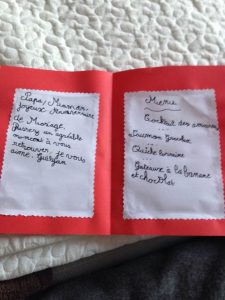 Papa, Maman,
Joyeux Anniversaire
de Mariage.
Passez un agréable
moment à vous
retrouver, je vous
aime.
Menu
Cocktail des amoureux
Saumon Gourmet
Quiche Lorraine
Gateaux à la banane
et chocolat